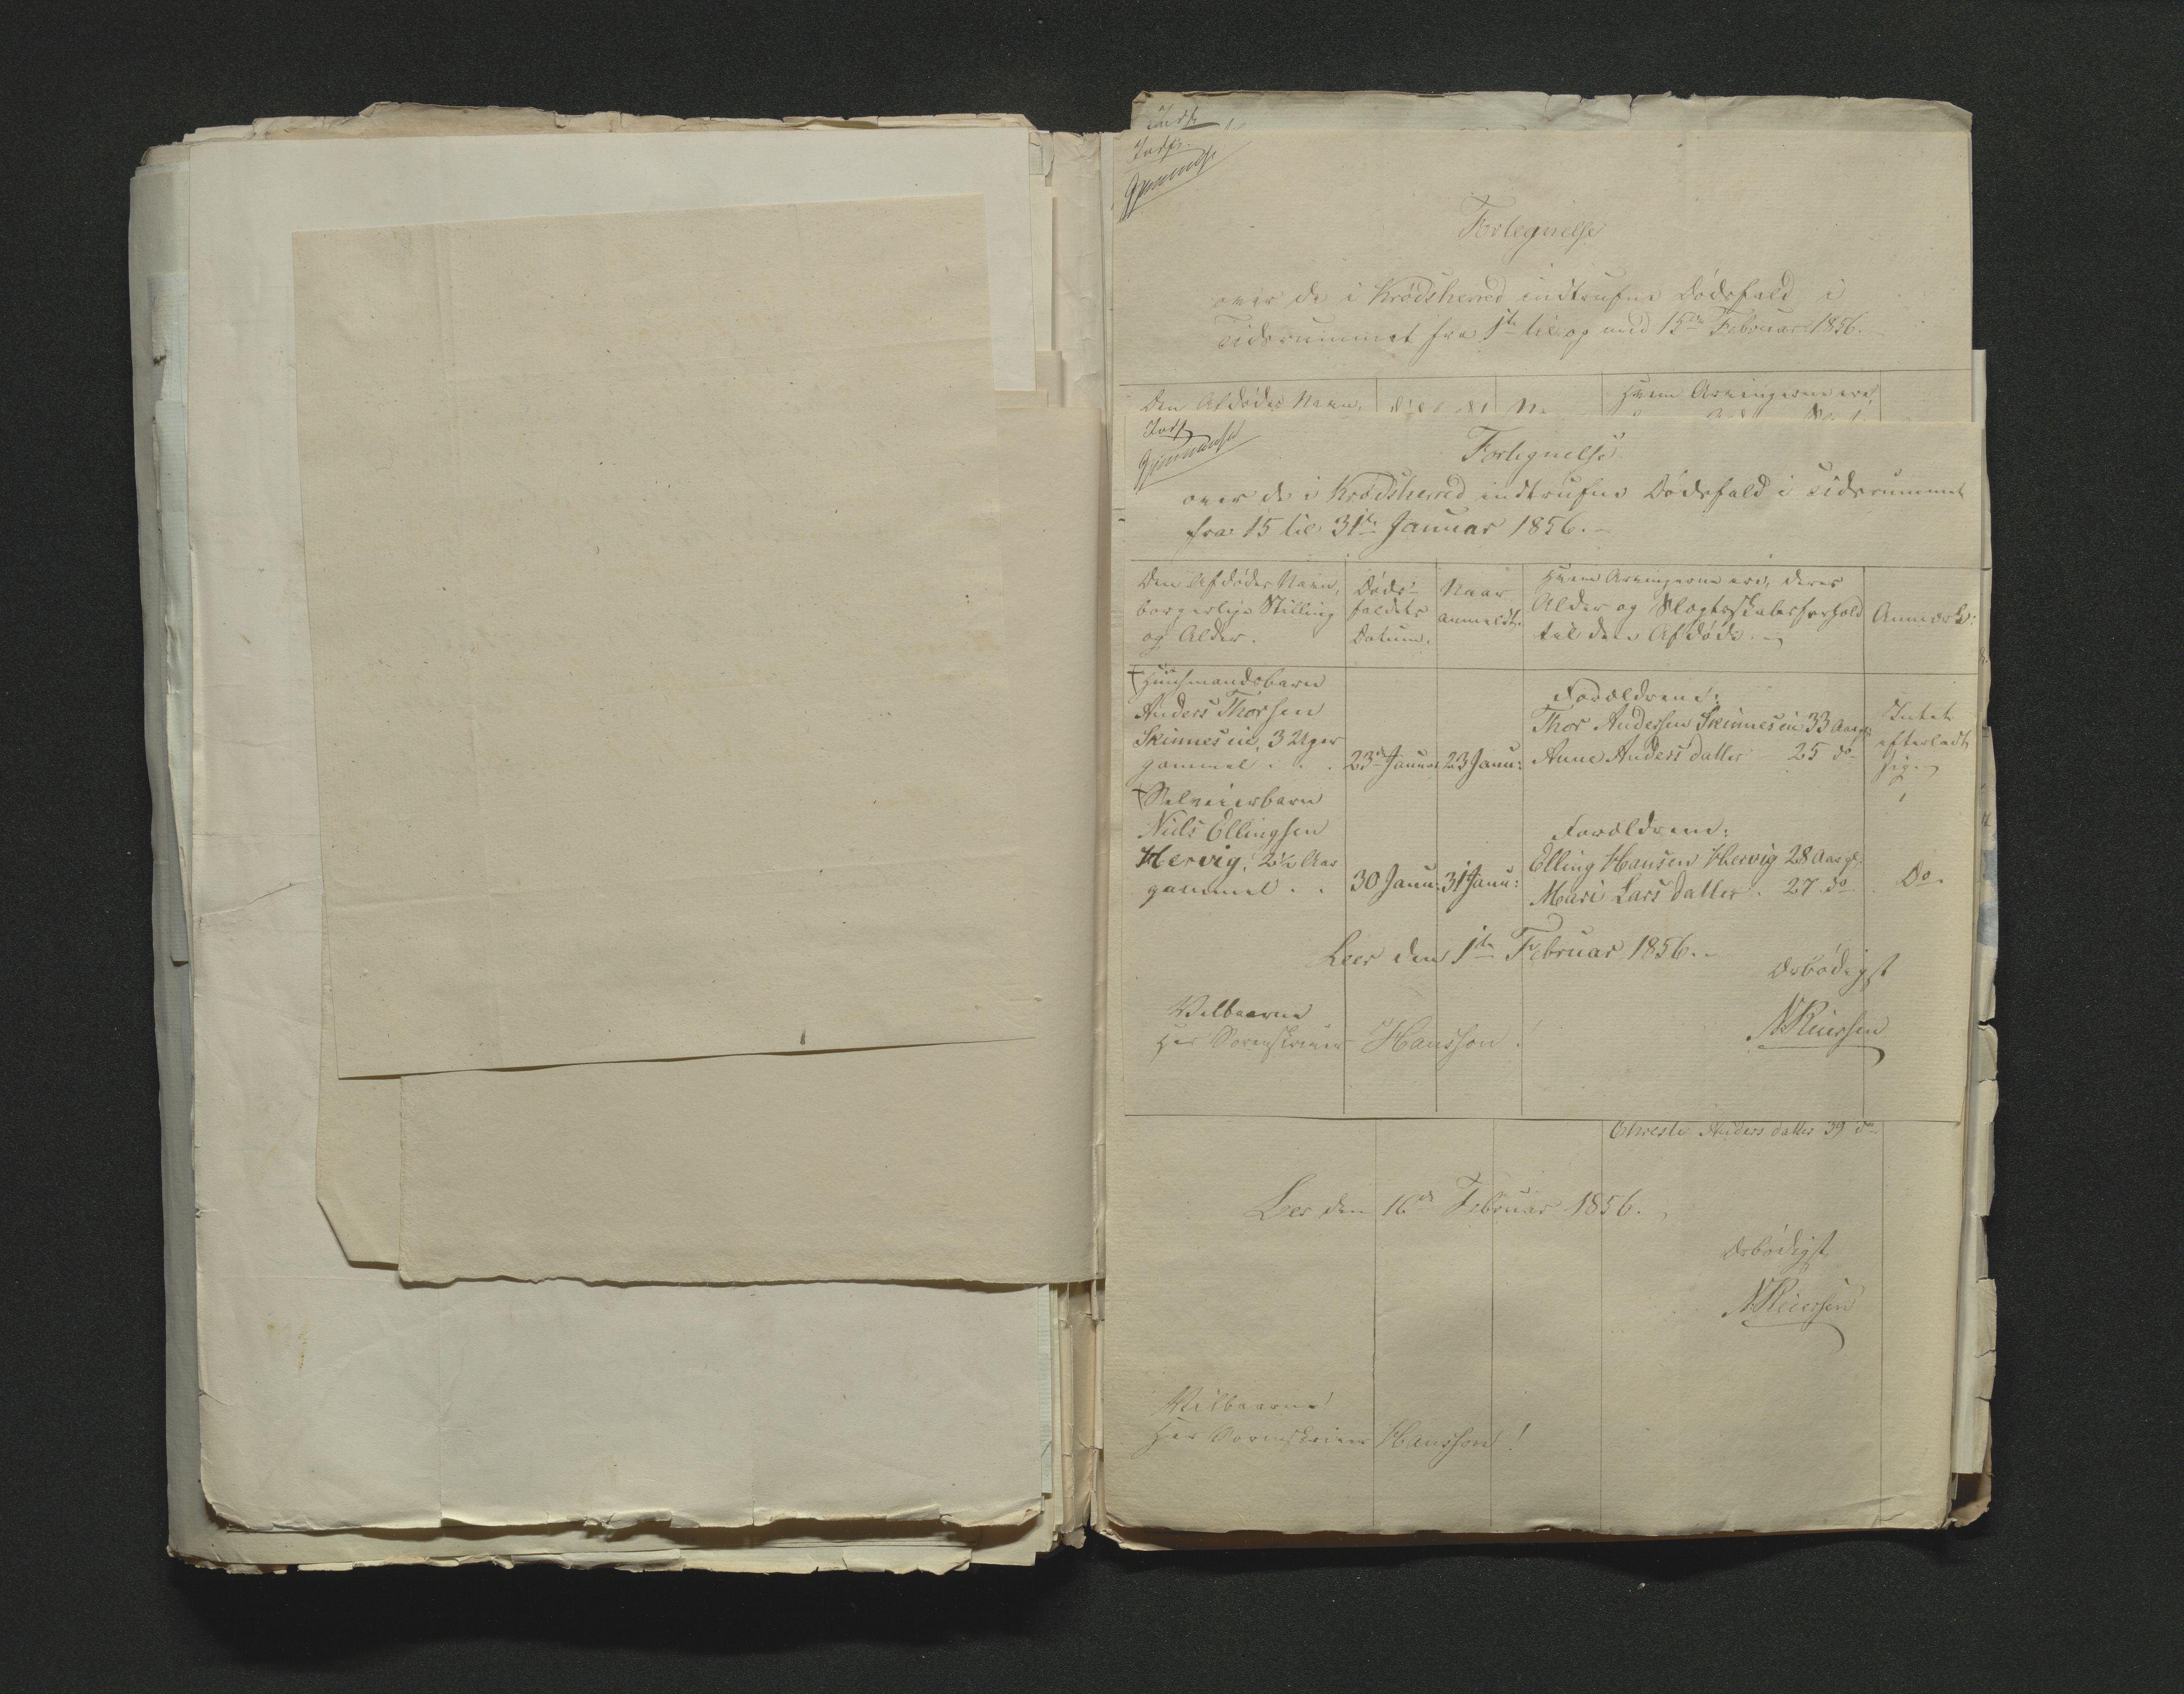 Indf.
Indf.
Gjennemgs.
Fortegnelse
over de i Krødsherred indtrufne Dødsfald i
Tidsrummet fra 1ste til og med 15de Februar 1856.
Den Afdødes Navn,
Hvem Arvingerne ere,
Indf.
Fortegnelse
over de i Krødsherred indtrufne Dødsfald i Tidsrummet
fra 15 til 31te Januar 1856.
Den Afdødes Navn, borgerlige Stilling og Alder.
Dødsfaldets Datum.
Naar anmeldt.
Hvem Arvingerne ere, deres Alder og Slægtskabsforhold til den Afdøde.
Anmærk:
Huusmandsbarn
Anders Thorsen
Skinnes eie, 3 Uger
gammel . . . 23de Januar 23 Janu:
Forældrene:
Thor Andersen Skinnes eie 33 Aar gl.
Anne Andersdatter 25 do
Intet
efterladt
sig
Selveierbarn
Niels Ellingsen
Hervig, 2½ Aar
gammel . . 30 Janu: 31te Janu:
Forældrene:
Elling Hansen Hervig 28 Aar gl.
Mari Larsdatter . 27 do
Do
Leer den 1ste Februar 1856.
Ærbødigst
N Reiersen
Velbaarne
Hr Sorenskriver Hansson!
Chresti Andersdatter 39 do
Leer den 16de Februar 1856.
Ærbødigst
N Reiersen
Velbaarne
Hr Sorenskriver Hansson!